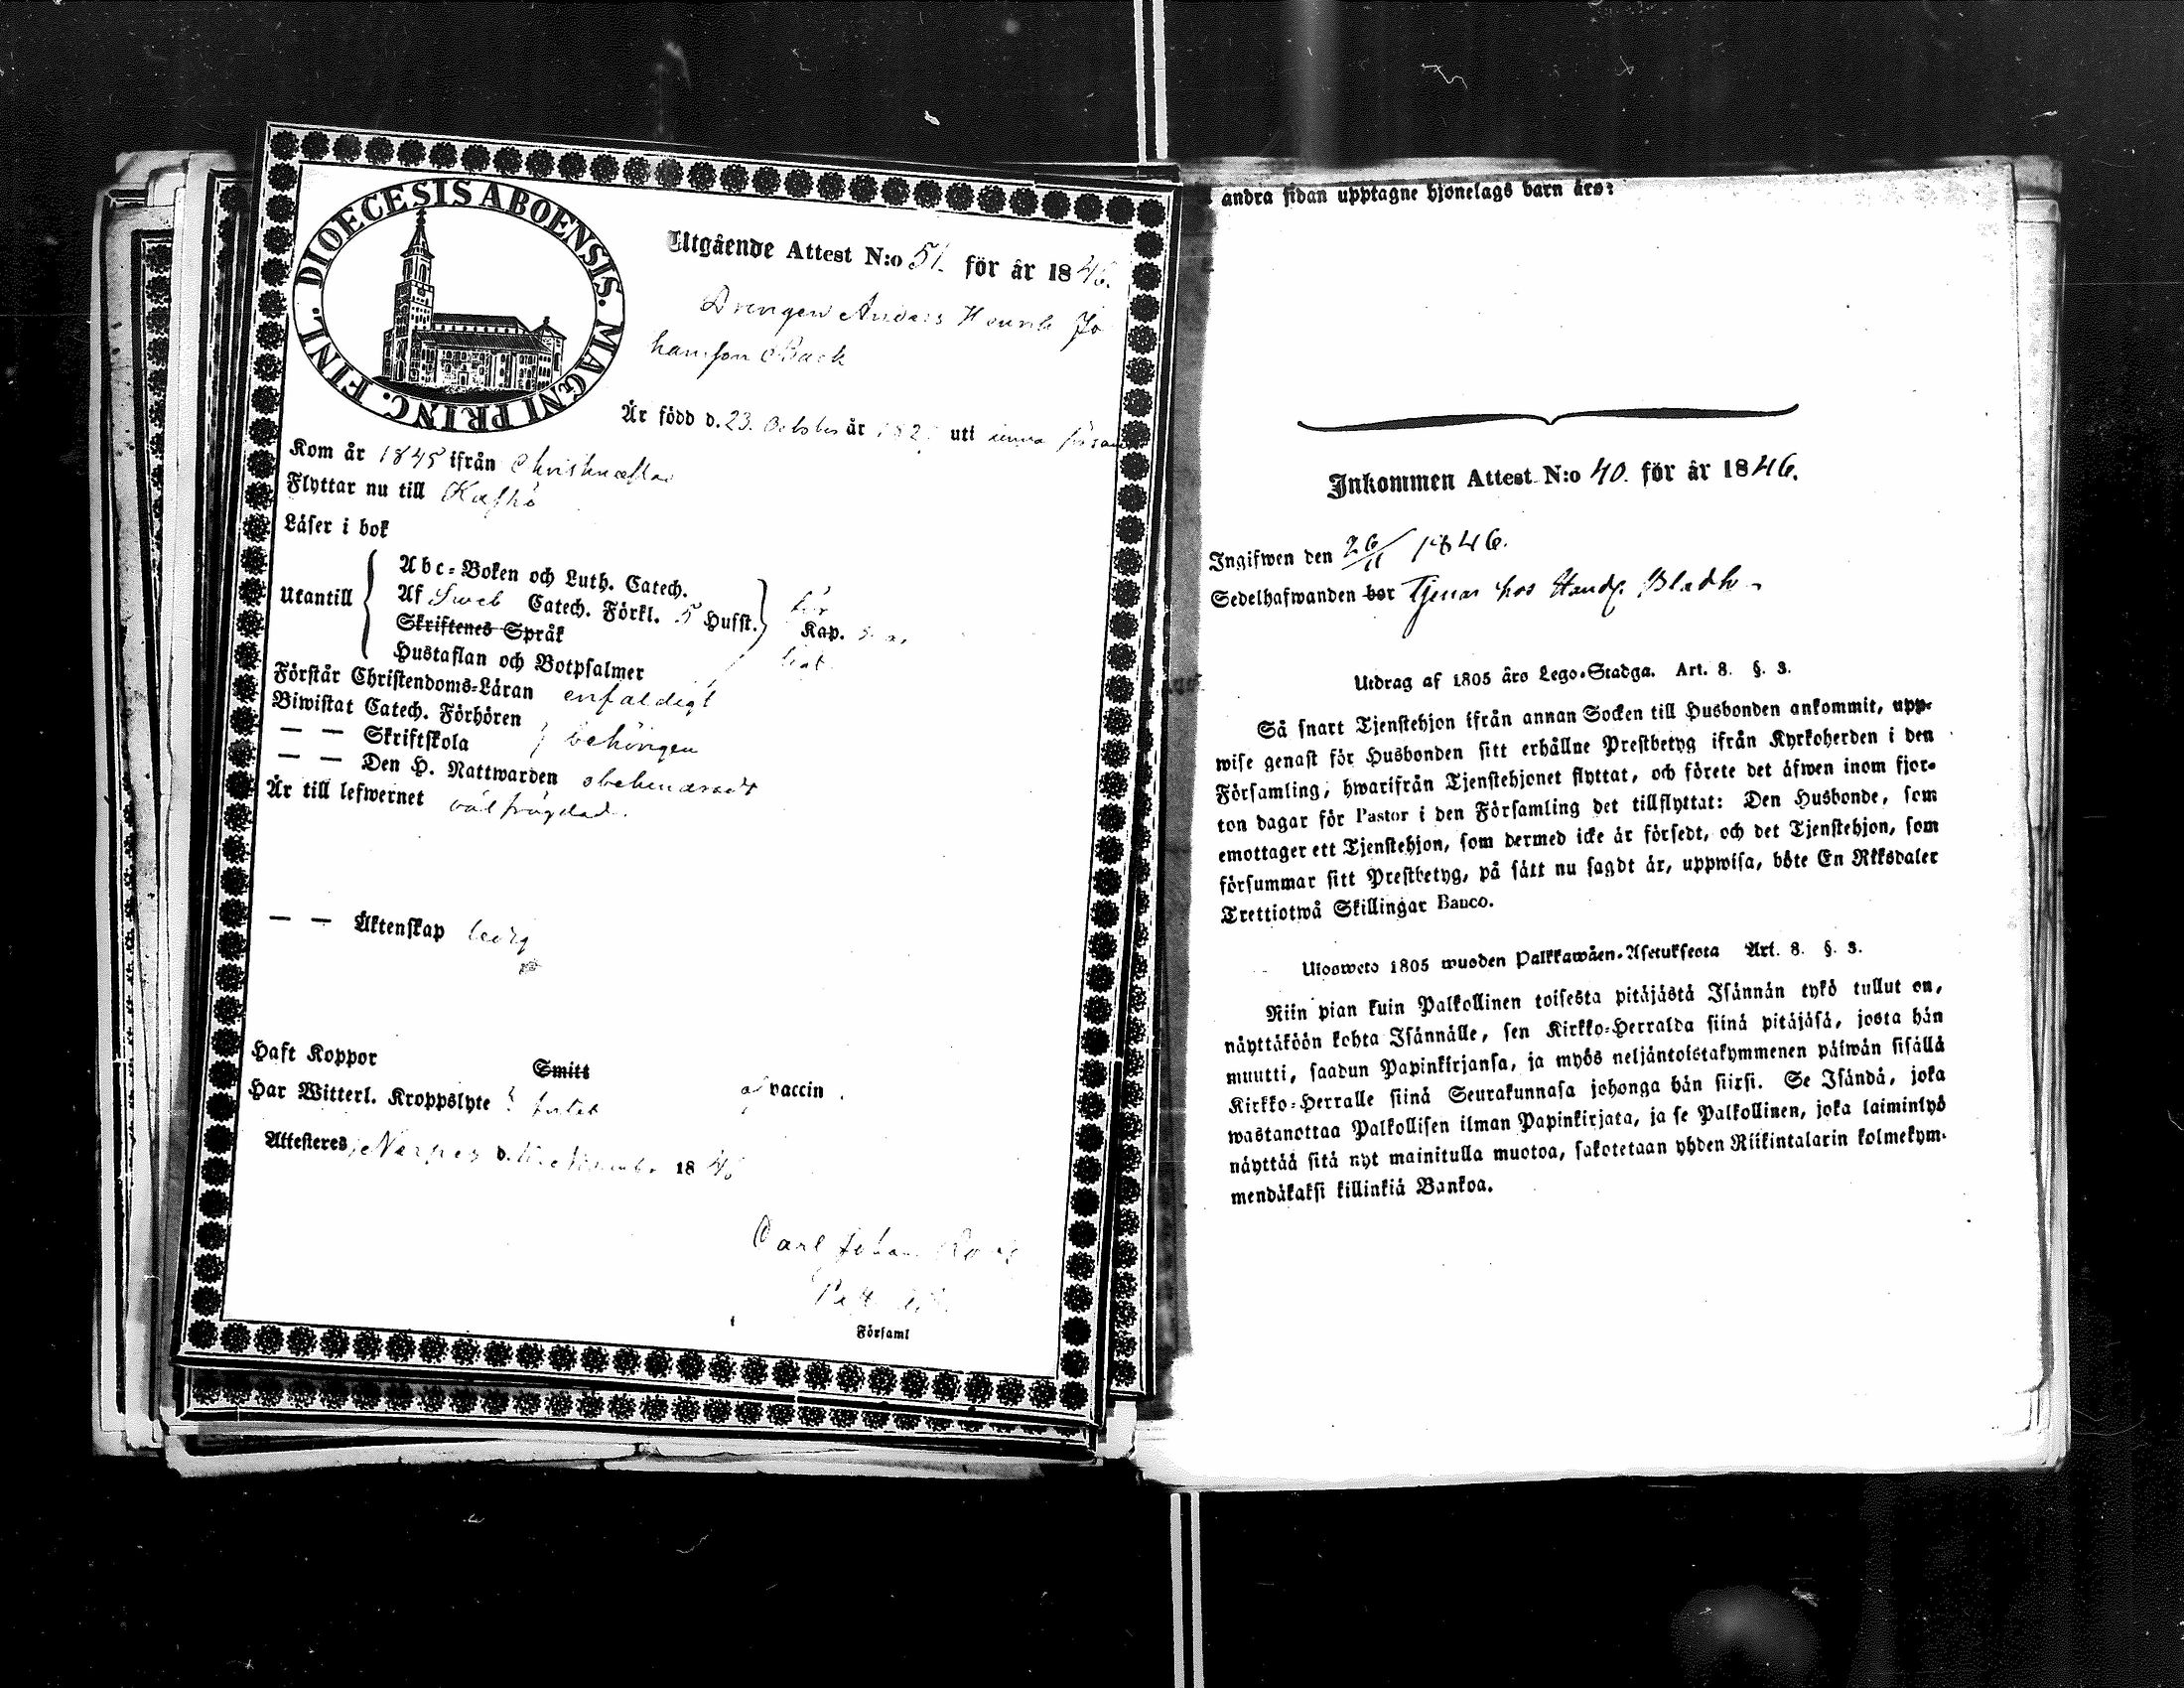 DIOECESIS ABOENSIS. MAGNI PRINC. FINL.
Utgående Attest N:o 51. för år 1846.
Drengen Anders Henrik Jo
hansson Back
Är född d. 23. October år 182 uti denna försam
Kom år 1845 ifrån Christinæstad
Flyttar nu till Kaskö
Läser i bok
Utantill
Abc-Boken och Luth. Catech.
Af Sweb Catech. Förkl. 5 Hufst. Kap.
Skriftenes Språk
Hustaflan och Botpsalmer
Förstår Christendoms-Läran enfaldigt
Biwistat Catech. Förhören
— — Skriftskola behörigen
— — Den H. Nattwarden obehindradt
Är till lefwernet väl frägdad.
— — Äktenskap ledig
Haft Koppor Smitt
Har Witterl. Kroppslyte vaccin
Attesteres, Nerpes d. November 1846
Carl Johan
Församl
andra sidan upptagne hjonelags barn äro:
Inkommen Attest N:o 40. för år 1846.
Ingifwen den 26/11 1846.
Sedelhafwanden bor Tjenar hos Handl. Bladh
Utdrag af 1805 års Lego-Stadga. Art. 8. §. 3.
Så snart Tjenstehjon ifrån annan Socken till Husbonden ankommit, upp-
wise genast för Husbonden sitt erhållne Prestbetyg ifrån Kyrkoherden i den
Församling, hwarifrån Tjenstehjonet flyttat, och förete det äfwen inom fjor-
ton dagar för Pastor i den Församling det tillflyttat: Den Husbonde, som
emottager ett Tjenstehjon, som dermed icke är försedt, och det Tjenstehjon, som
försummar sitt Prestbetyg, på sätt nu sagdt är, uppwisa, böte En Riksdaler
Trettiotwå Skillingar Banco.
Ulosweto 1805 wuoden Palkkawäen-Asetuksesta Art. 8. §. 3.
Niin pian kuin Palkollinen toisesta pitäjästä Isännän tykö tullut on,
näyttäköön kohta Isännälle, sen Kirkko-Herralda siinä pitäjäsä, josta hän
muutti, saadun Papinkirjansa, ja myös neljäntoistakymmenen päiwän sisällä
Kirkko-Herralle siinä Seurakunnasa johonga hän siirsi. Se Isändä, joka
wastanottaa Palkollisen ilman Papinkirjata, ja se Palkollinen, joka laiminlyö
näyttää sitä nyt mainitulla muotoa, sakotetaan yhden Riikintalarin kolmekym-
mendäkaksi killinkiä Bankoa.